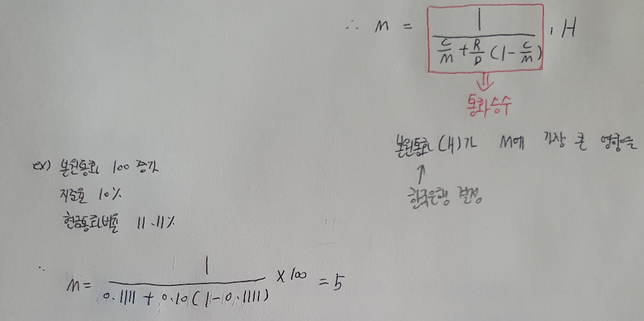 ∴ M = 1 / (C/M + R/D (1 - C/M)) · H
통화승수
본원통화 (H)가 M에 가장 큰 영향을
↑
한국은행 결정
ex) 본원통화 100 증가
지준율 10%
현금통화비율 11.11%
∴ M = 1 / (0.1111 + 0.10 (1 - 0.1111)) × 100 = 5